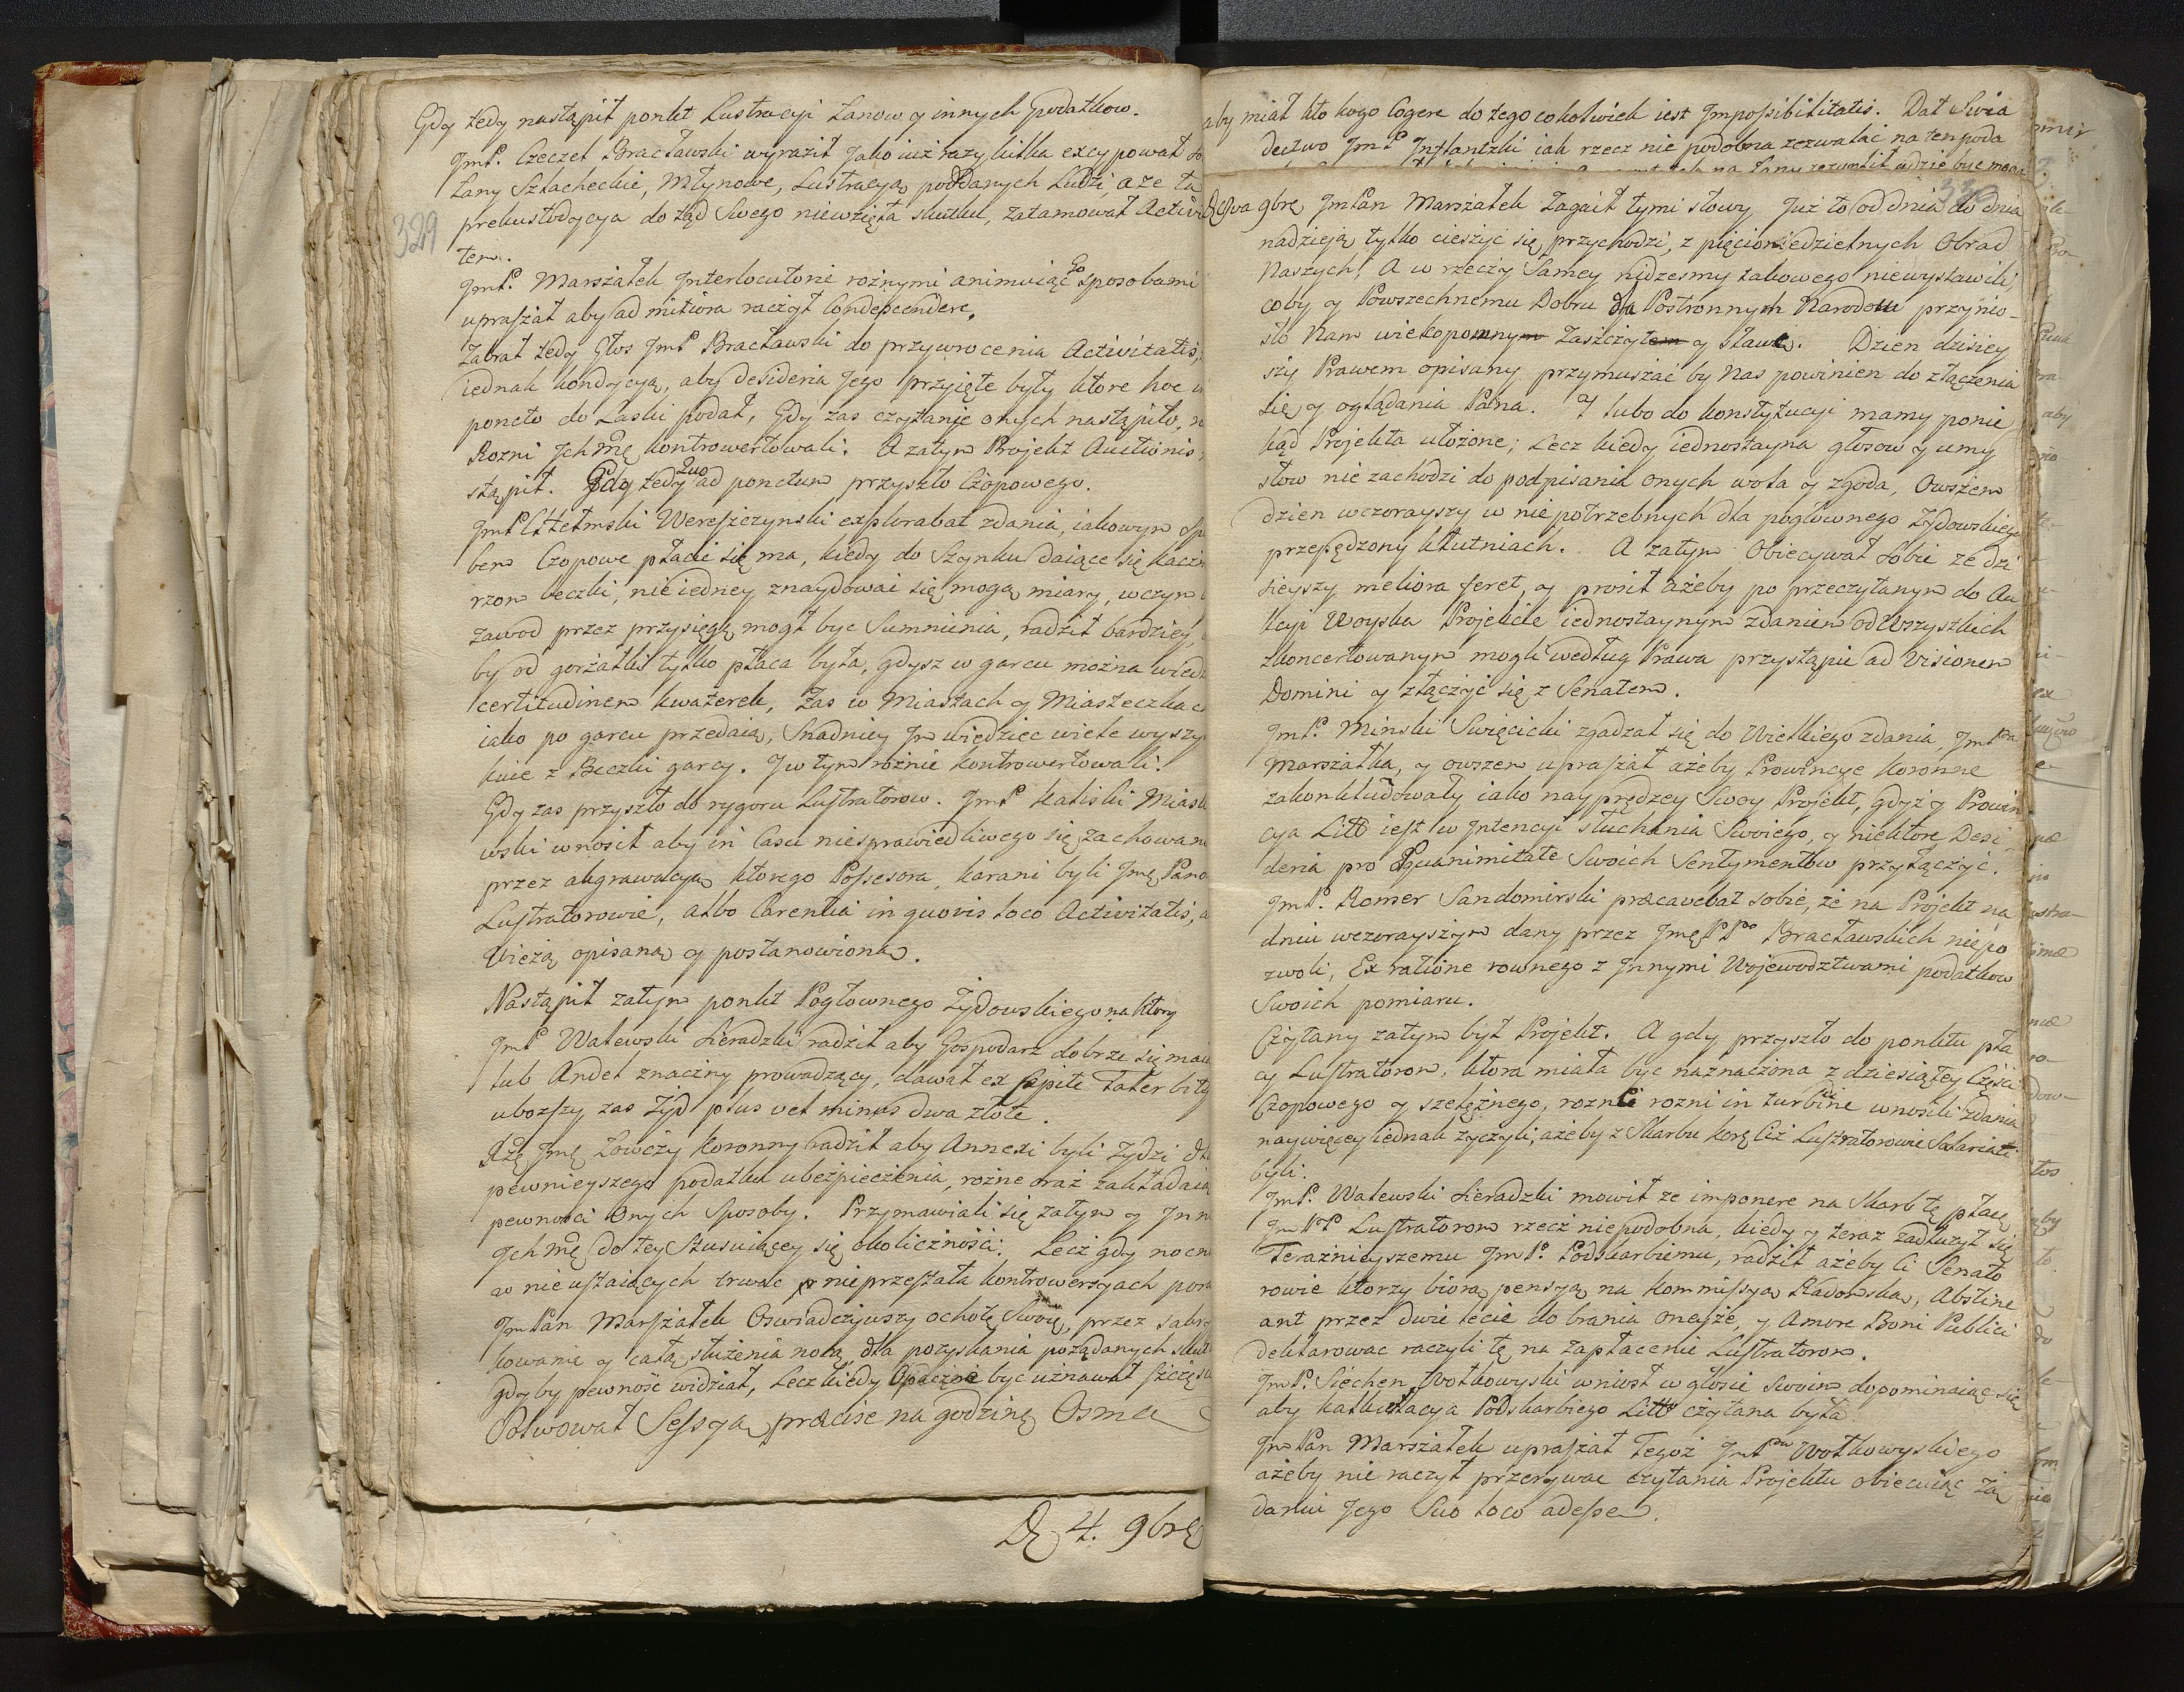 Gdy tedy nastąpił ponkt Lustracyi Łanow y innych Podatkow.
JmP. Czeczel Bracławski wyraził Jako iuz razy kilka excypował
Łany Szlacheckie, Młynowe, Lustracyą poddanych Ludzi, a ze ta
prekustodycya do ząd Swego niewzięła skutku, zatamował Activi
tem.
329
JmP. Marszałek Interlocutorie roznymi animuiąc Go sposobami
upraszał aby ad mitiora raczył Condescendere.
Zabrał tedy Głos JmP Bracławski do przywrocenia Activitatis,
iednak kondycyą, aby desideria Jego przyięte były ktore hoc in
poncto do Laski podał, Gdy zas czytanie onych nastąpiło,
Rozni Jchmę kontrowertowali. A zatym Projekt Auctionis
stąpił. Gdy tedy Quo ad ponctum przyszło Czopowego.
JmP Chełmski Wereszczynski explorabat zdania, iakowym Spo
bem Czopowe płacic się ma, kiedy do Szynku daiące się kacz
rzom beczki, nie iedney znaydowac się mogą miary, w czym
zawod przez przysięgę mogł byc Sumnienia, radził bardziey,
by od gorzałki tylko płaca była, gdysz w garcu mozna wiedz
certitudinem kwaterek, Zas w Miastach y Miasteczkac
iako po garcu przedaią, Snadniey Jm wiedziec wiele wyszy
kuie z Beczki garcy. J w tym roznie kontrowertowali.
Gdy zas przyszło do rygoru Lustratorow. JmP Kaliski Miask
wski wnosił aby in Casu niesprawiedliwego się zachowan
przez akgrawacyą ktorego Possesora, karani byli Jmę Pano
Lustratorowie, albo Carentia in quovis loco Activitatis,
Wiezą opisaną y postanowioną.
Nastąpił zatym ponkt Pogłownego Zydowskiego na ktory
JmP Walewski Sieradzki radził aby Gospodarz dobrze się mai
lub Andel znaczny prowadzący, dawał ex Capite Taler bity
ubozszy zas Zyd plus vel minus dwa złote.
Xżę Jmę Łowczy koronny radził aby Annexi byli Zydzi
pewnieyszego podatku ubezpieczenia, rozne oraz zakładaią
pewnosci Onych Sposoby. Przymawiali się zatym y Jnn
Jchmę do tey Stusuiącey się okolicznosci. Lecz gdy nocn
w nieustaiących trwac nieprzestała kontrowersyach pora
JmPan Marszałek Oswiadczywszy ochotę Swoię, przez
kowanie y całą służenia nocą, dla pozyskania pożądanych skut
gdyby pewność widział, Lecz kiedy byc uznawał
Solwował Sessyą præcise na godzinę Osmą
D. 4. 9brę
aby miał kto kogo Cogere do tego cokolwiek iest Jmpossibilitatis. Dał Swia
dectwo JmP Jnflantzki iak rzecz nie podobna zezwalac na ten poda
330
9brę JmPan Marszałek Zagaił tymi słowy Już to od dnia do dnia
nadzieją tylko cieszyć się przychodzi, z pięcioniedzielnych Obrad
Naszych, A w rzeczy Samey nigdzesmy takowego niewystawili,
coby y Powszechnemu Dobru dla Postronnych Narodow przynio-
sło Nam wiekopomnym Zaszczytem y sławę. Dzien dzisiey
szy Prawem opisany przymuszać by Nas powinien do złączenia
się y oglądania Pana. J lubo do konstytucyi mamy ponie
kąd Projekta ułożone; Lecz kiedy iednostayna głosow y umy
słow nie zachodzi do podpisania onych wola y zgoda, Owszem
dzien wczorayszy w nie potrzebnych dla pogłownego Zydowskiego
przepędzony kłutniach. A zatym Obiecywał Sobie ze dzi
sieyszy meliora feret, y prosił ażeby po przeczytanym do Au
kcyi Woyska Projekcie iednostaynym zdaniem od Wszystkich
zkoncertowanym mogli według Prawa przystąpic ad Visionem
Domini y złączyć się z Senatem.
JmP. Minski Swięcicki zgadzał się do Wielkiego zdania, JmPna
Marszałka, y owszem upraszał ażeby Prowincye koronne
zakonkludowały iako nayprędzey Swoy Projekt, Gdyż y Prowin
cya Litt iest w Jntencyi słuchania Swoiego, y niektore Desi
deria pro Equanimitate Swoich Sentymentow przyłączyć.
JmP. Romer Sandomirski præcavebat sobie, że na Projekt na
dniu wczorayszym dany przez Jmę PPw Bracławskich nie po
zwoli, Ex ratione rownego z Jnnymi Wojewodztwami podatkow
Swoich pomiaru.
Czytany zatym był Projekt. A gdy przyszło do ponktu pła
cy Lustratorom, ktora miała byc naznaczona z dziesiątey Części
Czopowego y szelężnego, rozni rozni in turbine wnosili zdania
naywięcey iednak życzyli, ażeby z Skarbu Ciż Lustratorowie Salariati
byli.
JmP. Walewski Sieradzki mowił ze imponere na Skarb tę płacę
JmPP Lustratorom rzecz niepodobna, kiedy y teraz zadłużył się
Teraznieyszemu JmP. Podskarbiemu, radził ażeby Ci Senato
rowie ktorzy biorą pensyą na kommissyą Radomską, Abstine
ant przez dwie lecie do brania oneyże, y Amore Boni Publici
deklarowac raczyli tę na Zapłacenie Lustratorom.
JmP. Siechen Wołkowyski wniosł w głosie Swoim dopominaiąc się
aby kalkulacya Podskarbiego Litt czytana była.
JmPan Marszałek upraszał Tegoż JmPna Wołkowyskiego
ażeby nie raczył przerywac czytania Projektu obiecuiąc Żą
daniu Jego Suo loco adesse.